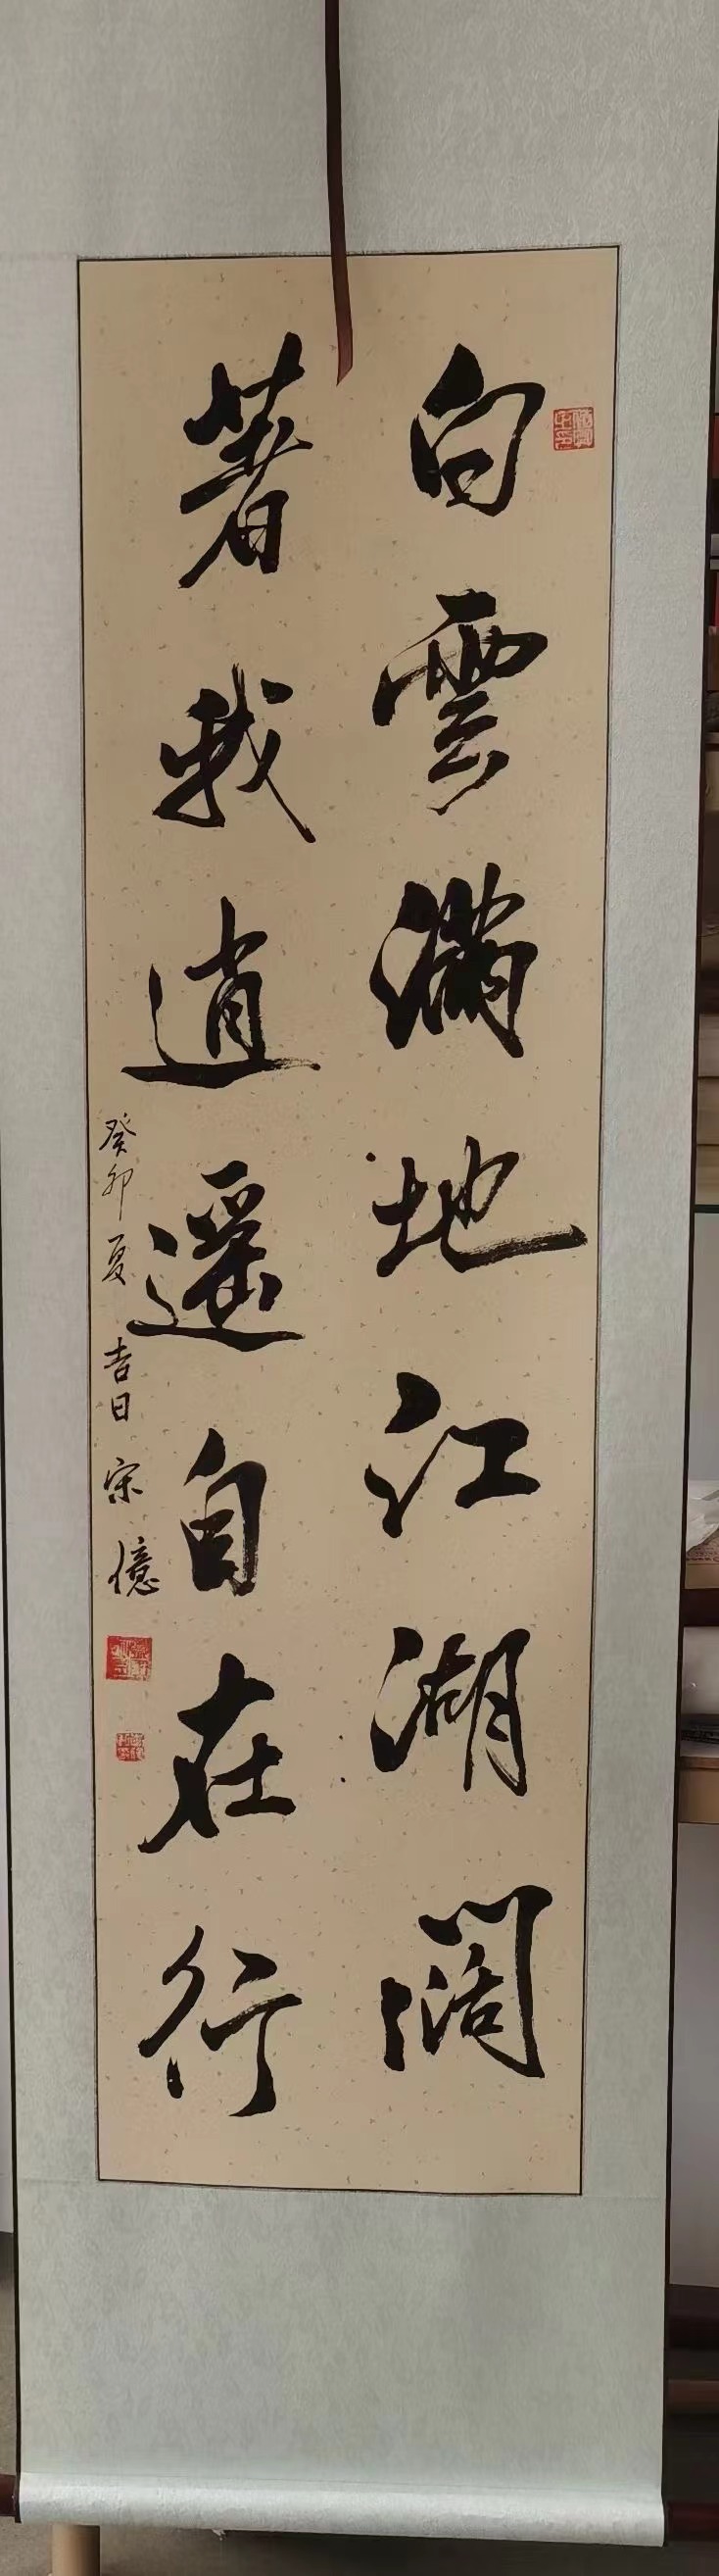 白雲滿地江湖闊
著我逍遥自在行
癸卯夏吉日宋憶